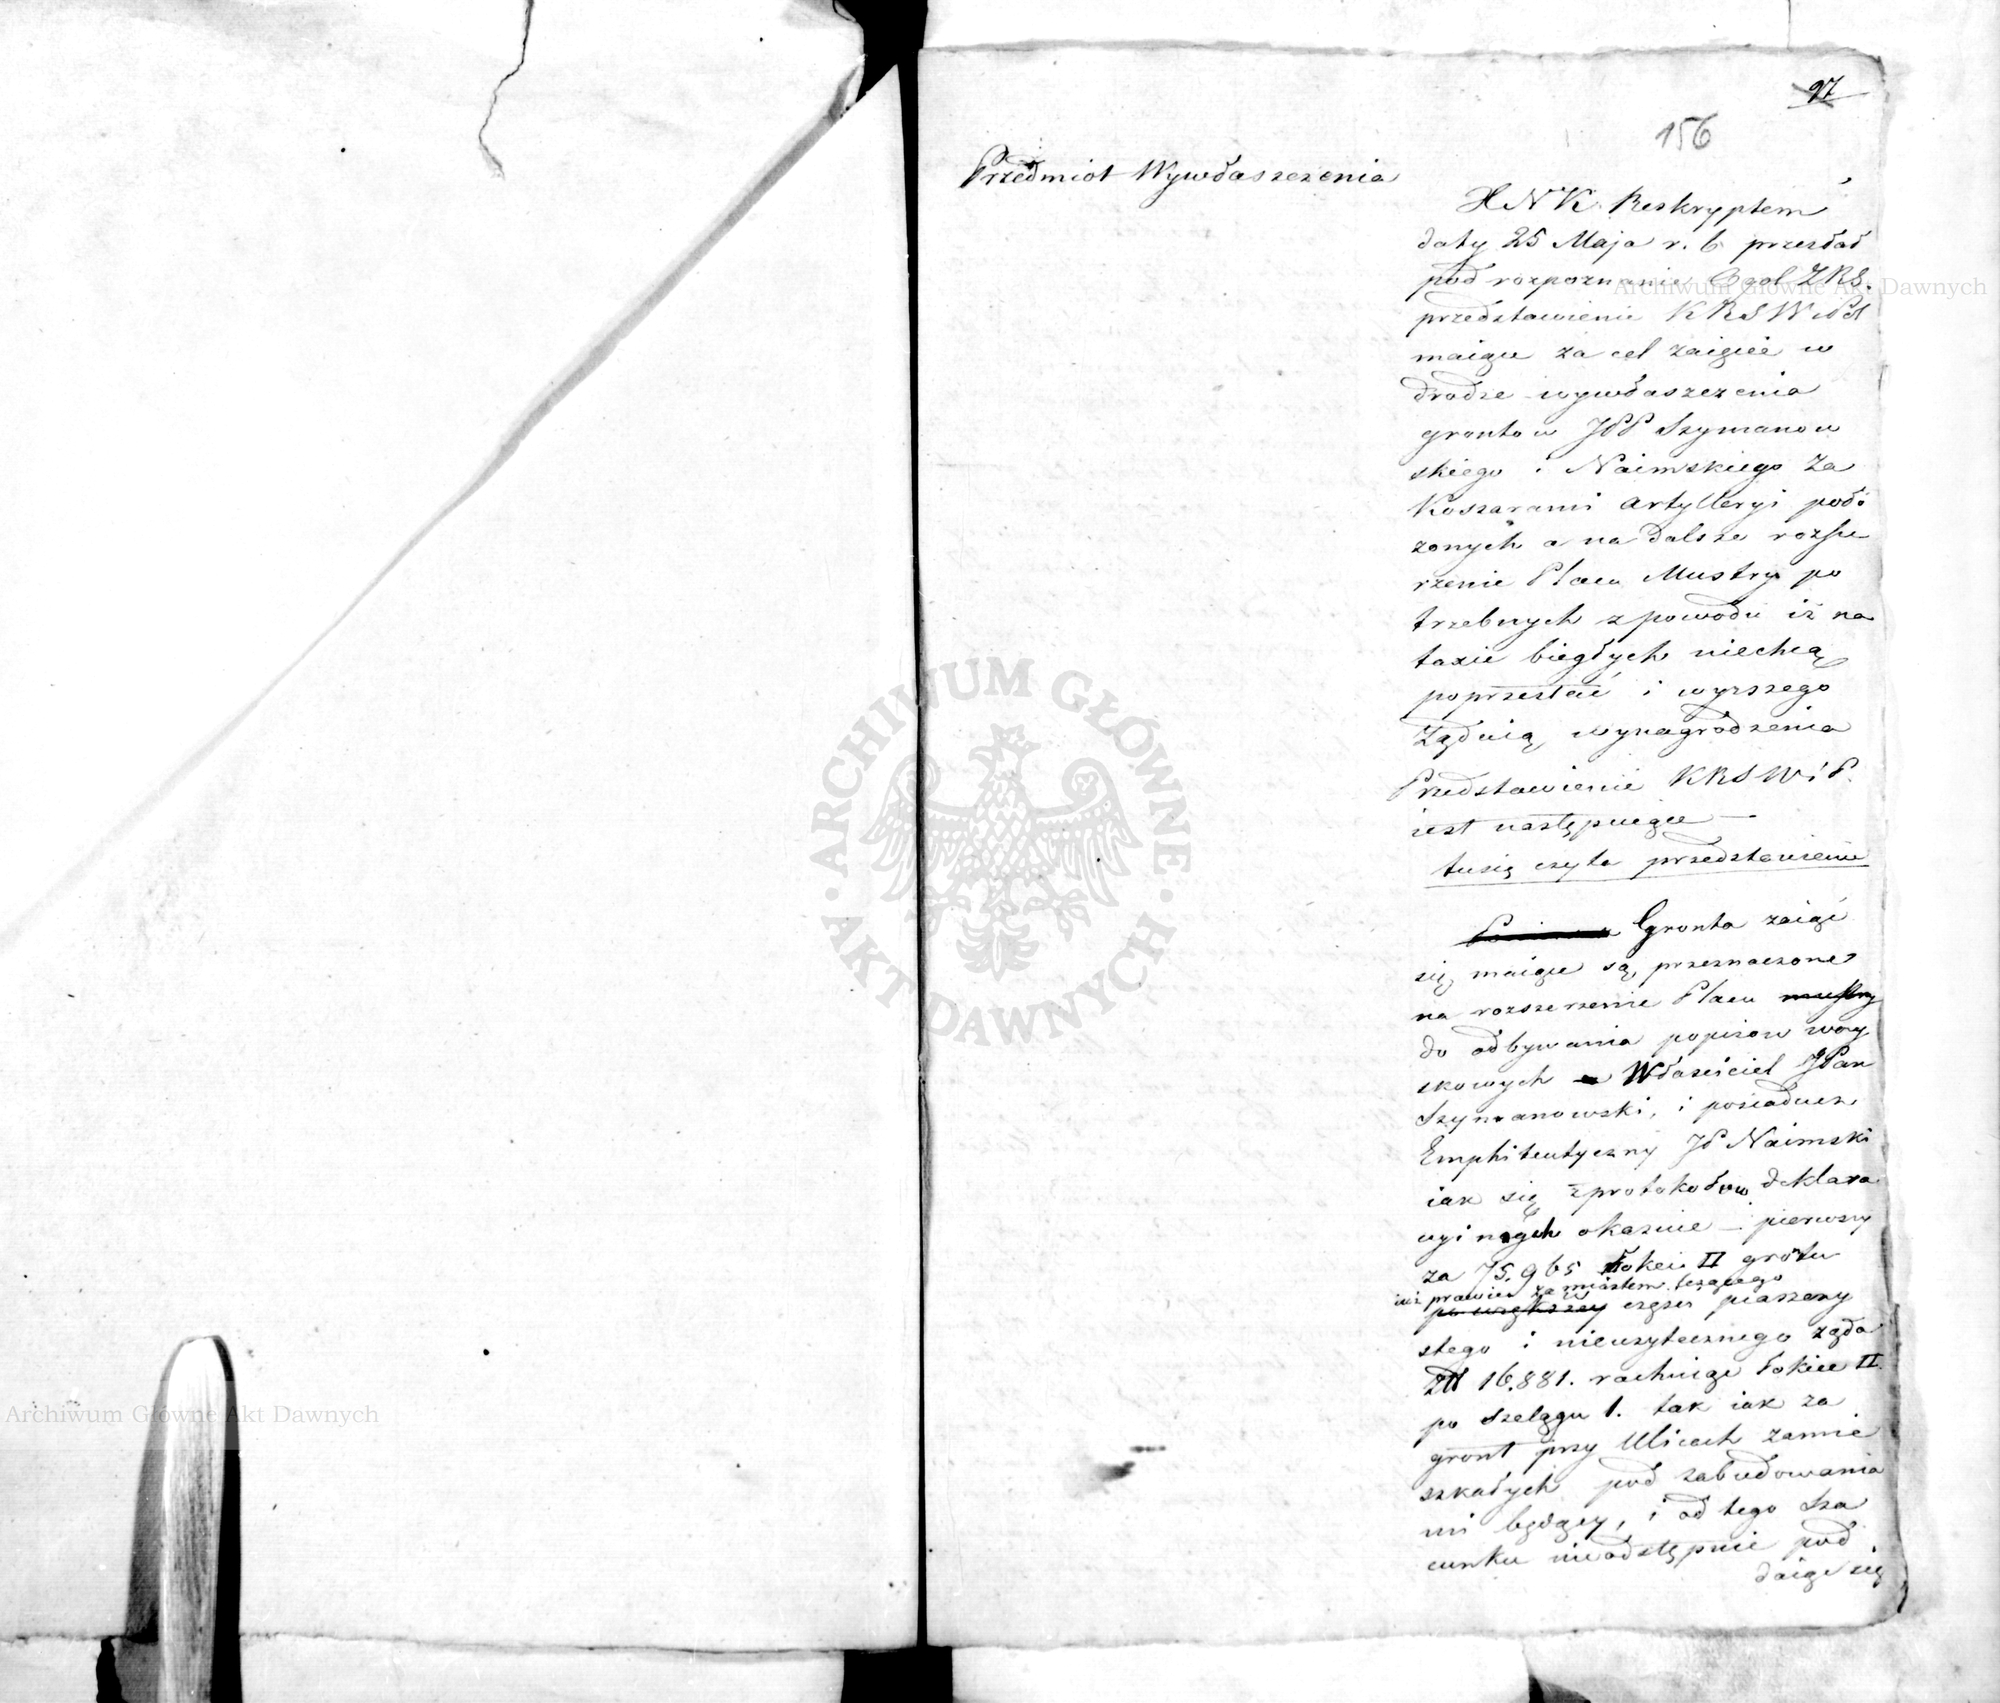 97
156
Przedmiot Wywłaszczenia
XNK Reskryptem
daty 25 Maja r. b. przesłał
pod rozpoznanie Ogol ZRS.
przedstawienie KRSW i P
maiące za cel zaięcie w
drodze wywłaszczenia
grontow JPP Szymanow
skiego i Naimskiego za
Koszarami Artylleryi poło
zonych a na dalsze rozsze
rzenie Placu Mustry po
trzebnych z powodu iż na
taxie biegłych niechcą
poprzestać i wyższego
żąduią wynagrodzenia
Przedstawienie KRSW i P.
iest następuiące —
tu się czyta przedstawienie
Gronta zaiąć
się maiące są przeznaczone
na rozszerzenie Placu mustry
do odbywania popisow woy
skowych Właściciel JPan
Szymanowski, i posiadacz
Emphiteutyczny JP Naimski
iak się z protokołow deklara
cyinych okazuie — pierwszy
za 75.965 łokci II grontu
iuż prawie za miastem leżącego
po większey części piaszczy
stego i nieużytecznego żąda
Złl 16.881. rachuiąc łokiec II
po Szelągu 1. tak iak za
gront przy Ulicach zamie
szkałych pod zabudowania
mi będący, i od tego Sza
cunku nieodstępnie pod
daiąc się
Archiwum Główne Akt Dawnych
ARCHIWUM GŁÓWNE AKT DAWNYCH
Archiwum Główne Akt Dawnych